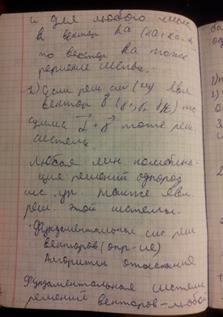 и для любого числа
k вектор ka (ka₁, ka₂
то вектор ka тоже
решение системы.
2) Если реш сис (су) явл
вектор γ (γ₁, γ₂, γₙ) то
сумма + γ тоже реш
системы.
Любая лин комбина-
ция решений однород
сис. ур также явл.
реш. этой системы.
Фундаментальная сис реш
векторов (опр-ие)
Алгоритм отыскания
Фундаментальная система
решений векторов - любая